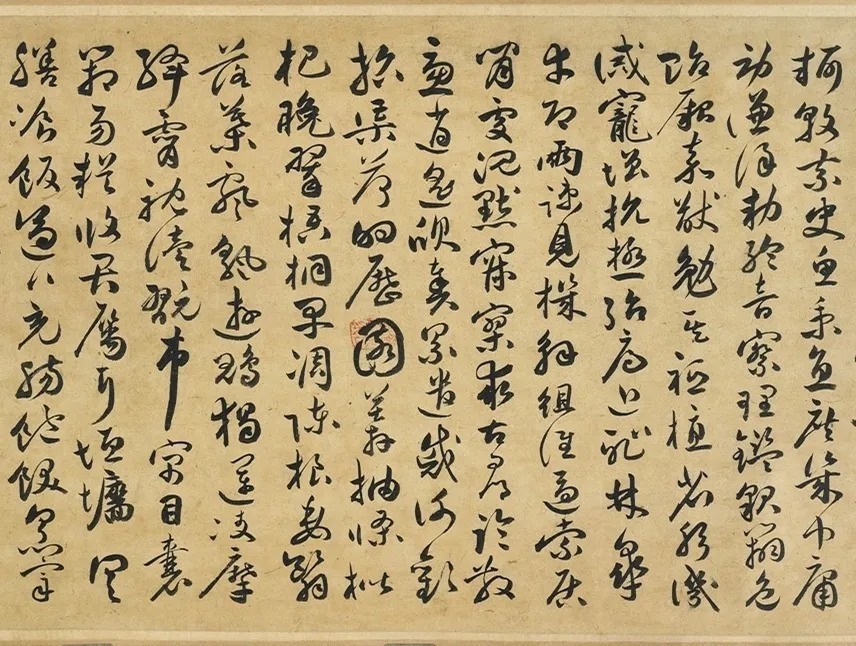 軻敦素史魚秉直庶幾中庸
勞謙謹勅聆音察理鑑貌辯色
貽厥嘉猷勉其祗植省躬譏
誡寵增抗極殆辱近恥林皋
幸即兩疏見機解組誰逼索居
閑處沉默寂寥求古尋論散
慮逍遙欣奏累遣慼謝歡
招渠荷的歷園莽抽條枇
杷晚翠梧桐早凋陳根委翳
落葉飄颻遊鵾獨運凌摩
絳霄耽讀翫市寓目囊
箱易輶攸畏屬耳垣墻具
膳飡飯適口充腸飽飫烹宰